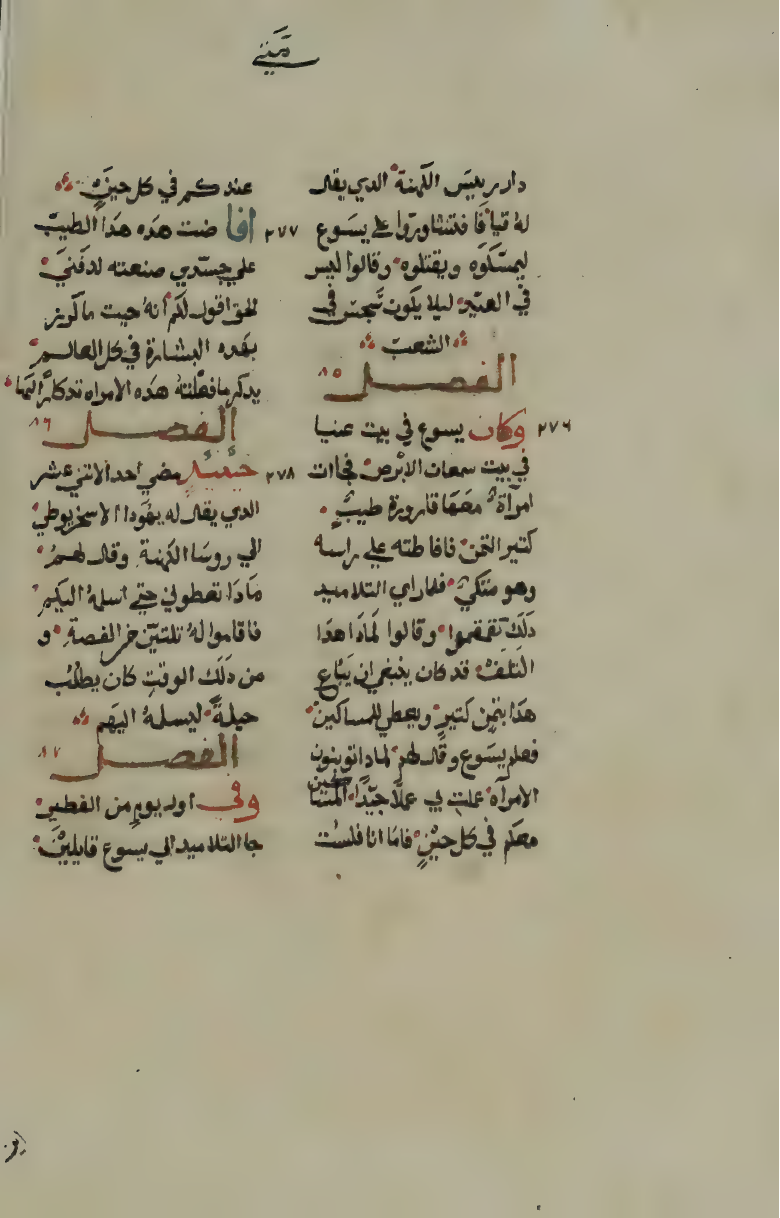 متى
دار ريس الكهنة الدي يقال
له قيافا فتشاوروا على يسوع
ليمسكوه ويقتلوه وقالوا ليس
في العيد ليلا يكون سجس في
الشعب
الفصل ٨٥
٢٧٦ وكان يسوع في بيت عنيا
في بيت سمعان الابرص فجاات
امرأة معها قارورة طيب
كتير التمن فافاطته على راسه
وهو متكي فلما راي التلاميد
دلك تقمقموا وقالوا لمادا هدا
التلف قد كان ينبغي ان يباع
هدا بتمن كتير ويعطى للمساكين
فعلم يسوع وقال لهم لمادا توبنون
الامرأه عملت بي عملا جيدا المساكين
معكم في كل حين فاما انا فلست
عندكم في كل حين
٢٧٧ افاضت هده هدا الطيب
علي جسدي صنعته لدفني
الحق اقول لكم انه حيت ما كرز
بهده البشارة في كل العالم
يدكر ما فعلته هده الامراه تدكارا لها
الفصل ٨٦
٢٧٨ حينيد مضي احد الاتني عشر
الدي يقال له يهودا الاسخريوطي
الي روسا الكهنة وقال لهم
مادا تعطوني حتي اسلمه اليكم
فاقاموا له تلتين من الفضة و
من دلك الوقت كان يطلب
حيلة ليسلمه اليهم
الفصل ٨٧
وفي اول يوم من الفطير
جا التلاميد الي يسوع قايلين